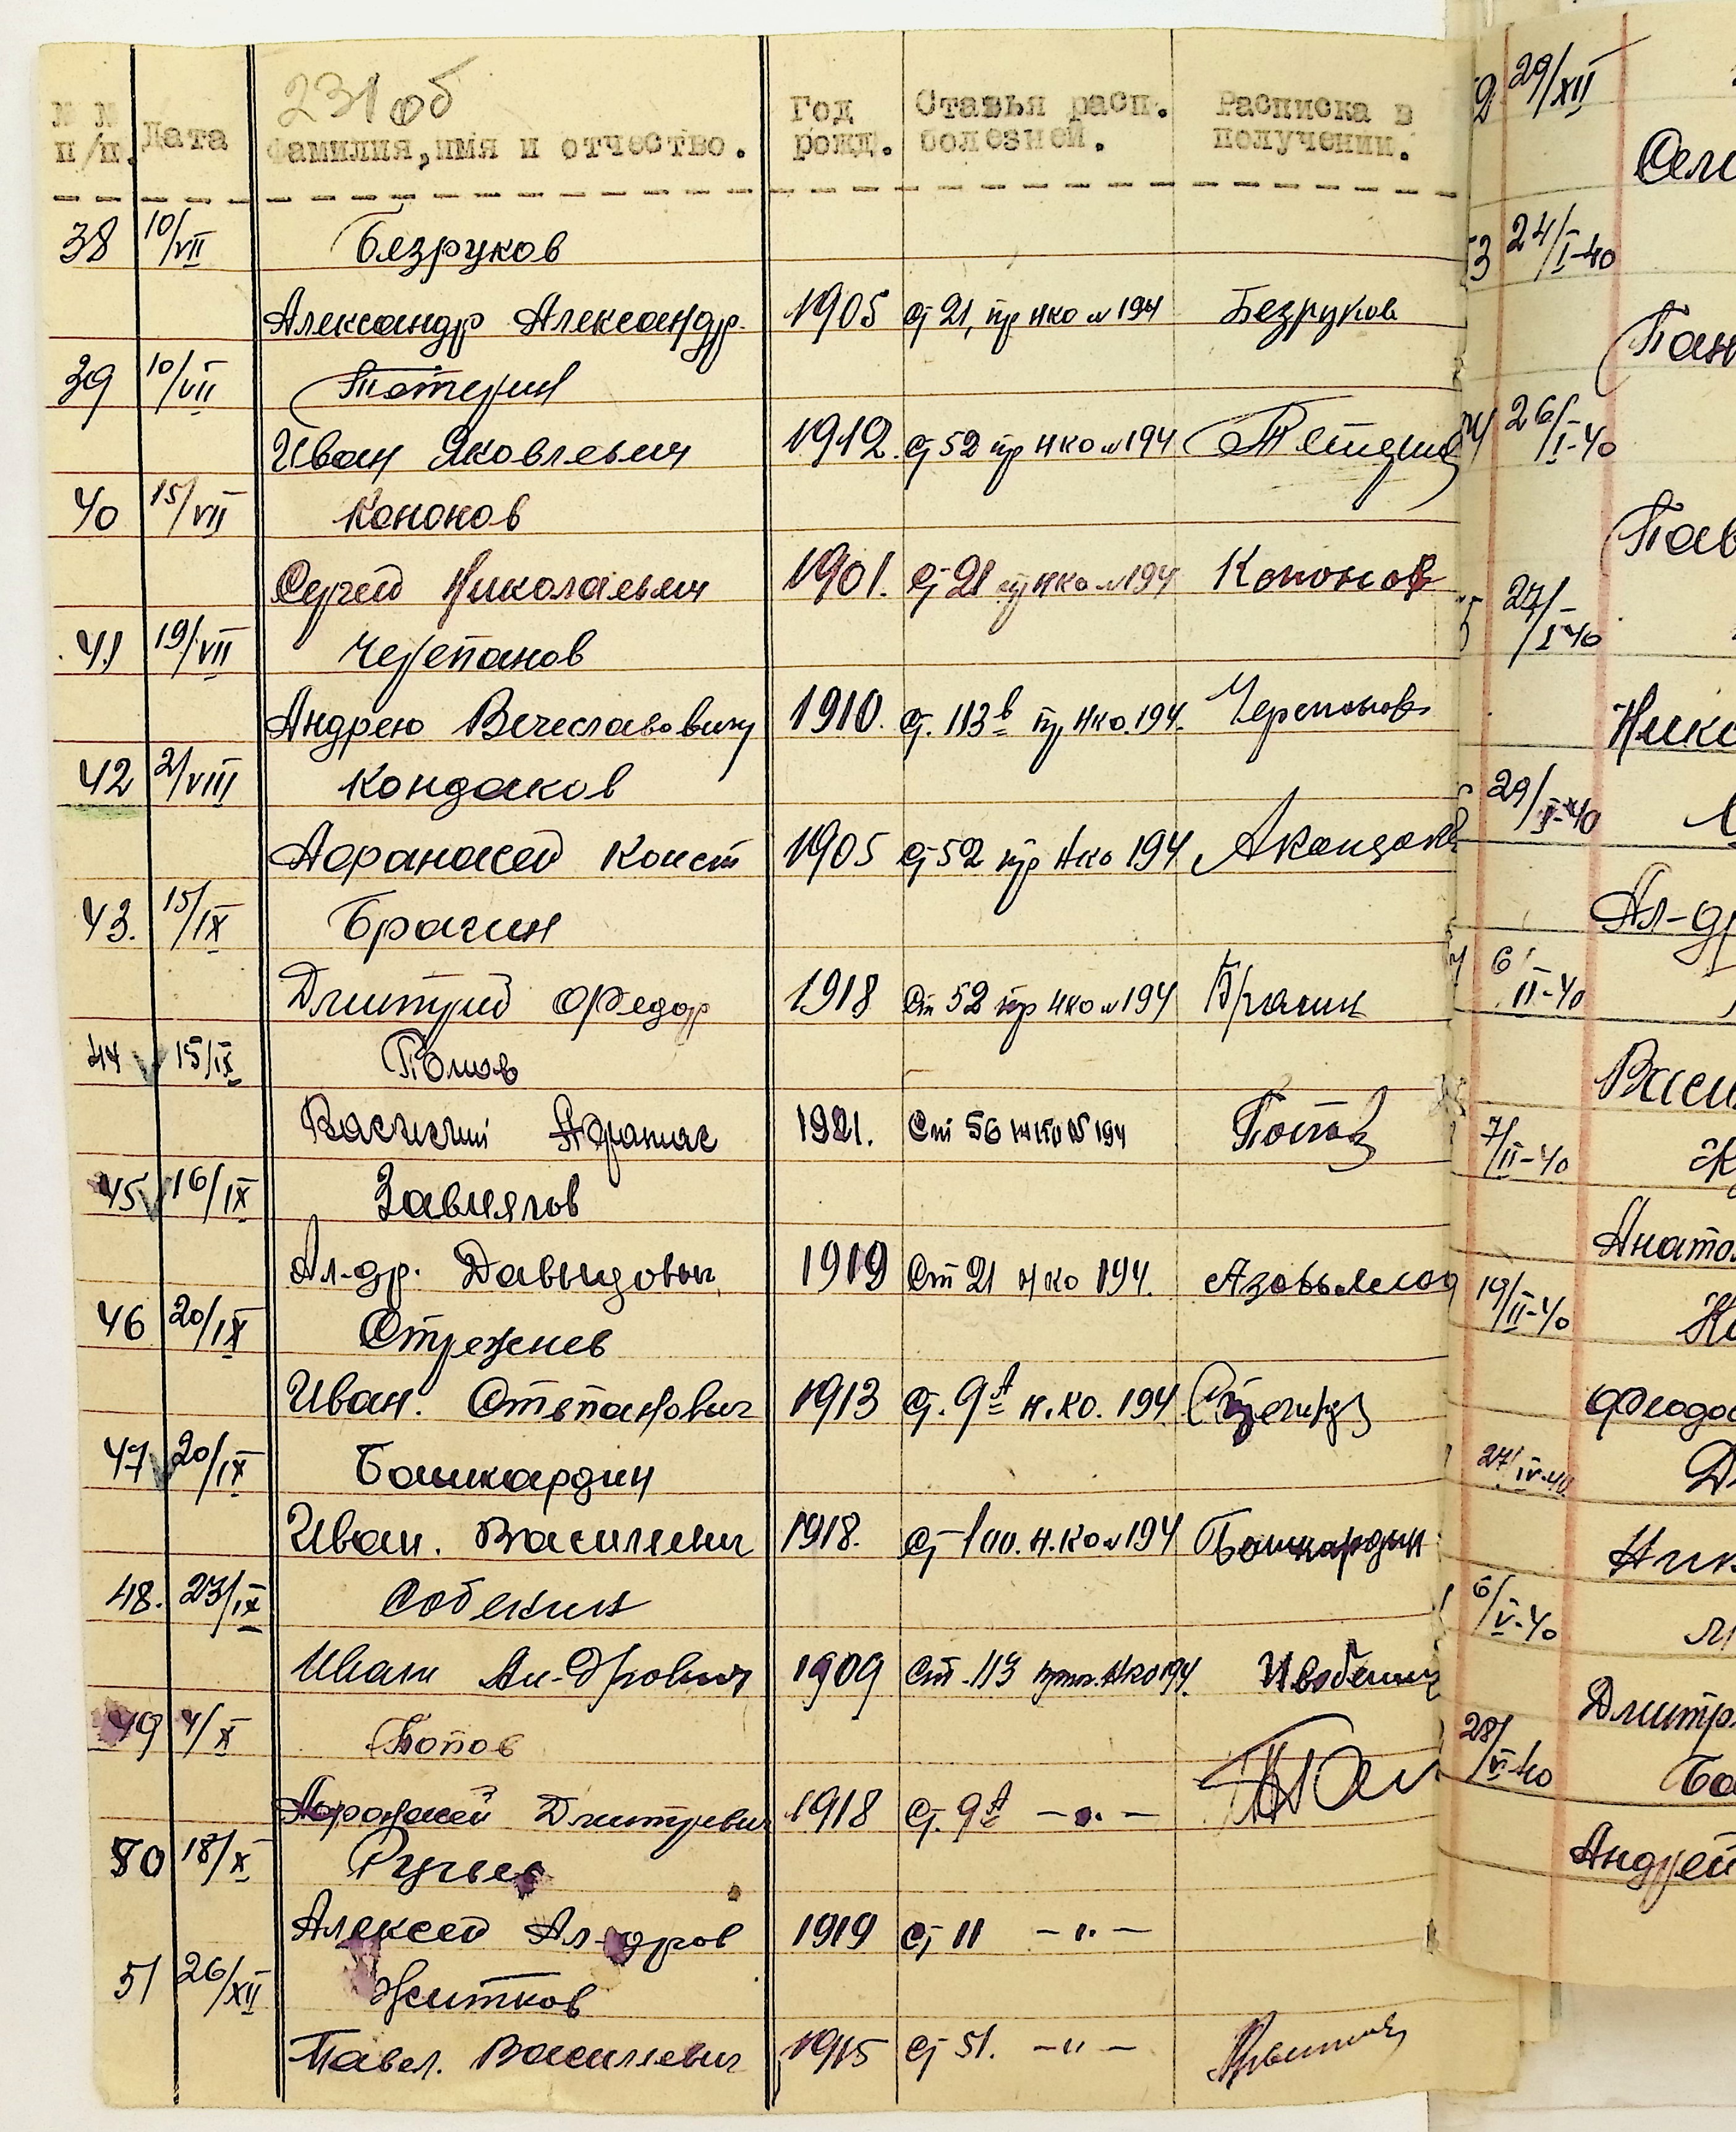 231 об
№ № п/п. Дата Фамилия, имя и отчество. Год рожд. Статья расп. болезней. Расписка в получении.
38 10/VII Безруков
Александр Александр. 1905 ст 21, пр нко №194 Безруков
39 10/VII Тетерин
Иван Яковлевич 1912. ст 52 пр нко №194
40 15/VII Кононов
Сергей Николаевич 1901. ст 21 пр нко №194 Кононов
41 19/VII Черепанов
Андрею Вечеславовичу 1910. ст. 113в пр нко. 194. Черепанов
42 21/VIII Кондаков
Афанасей Конст 1905 ст 52 пр нко 194 АКондаков
43. 15/IX Брагин
Дмитрий Федор 1918 ст 52 пр нко №194 Брагин
44 15/IX Попов
Василий Афанас 1921. Ст 56 нко №194 Попов
45 16/IX Завьялов
Ал-др. Давыдович 1919 Ст 21 нко 194.
46 20/IX Стрежнев
Иван. Степанович 1913 ст. 9А н.ко. 194
47 20/IX Башкардин
Иван. Василиевич 1918. ст н.ко №194 Башкардин
48. 23/IX Собенин
Иван Ал-дрович 1909 Ст. 113 нко 194. ИСобенин
49 4/X Попов
Афонасей Дмитриевич 1918 ст. 9А —"—
50 18/X
Алексей Ал-дров 1919 ст 11 —"—
51 26/XII Житков
Павел. Василиевич 1915 ст 51. —"—
29/XII
24/I-40
Пан
26/I-40
Пав
27/I-40
Нико
29/I-40
Ал-др
6/II-40
Васи
7/II-40
Анато
19/II-40
Феодо
27/IV-40
Ник
6/V-40
Дмитр
28/V-40
Андрей